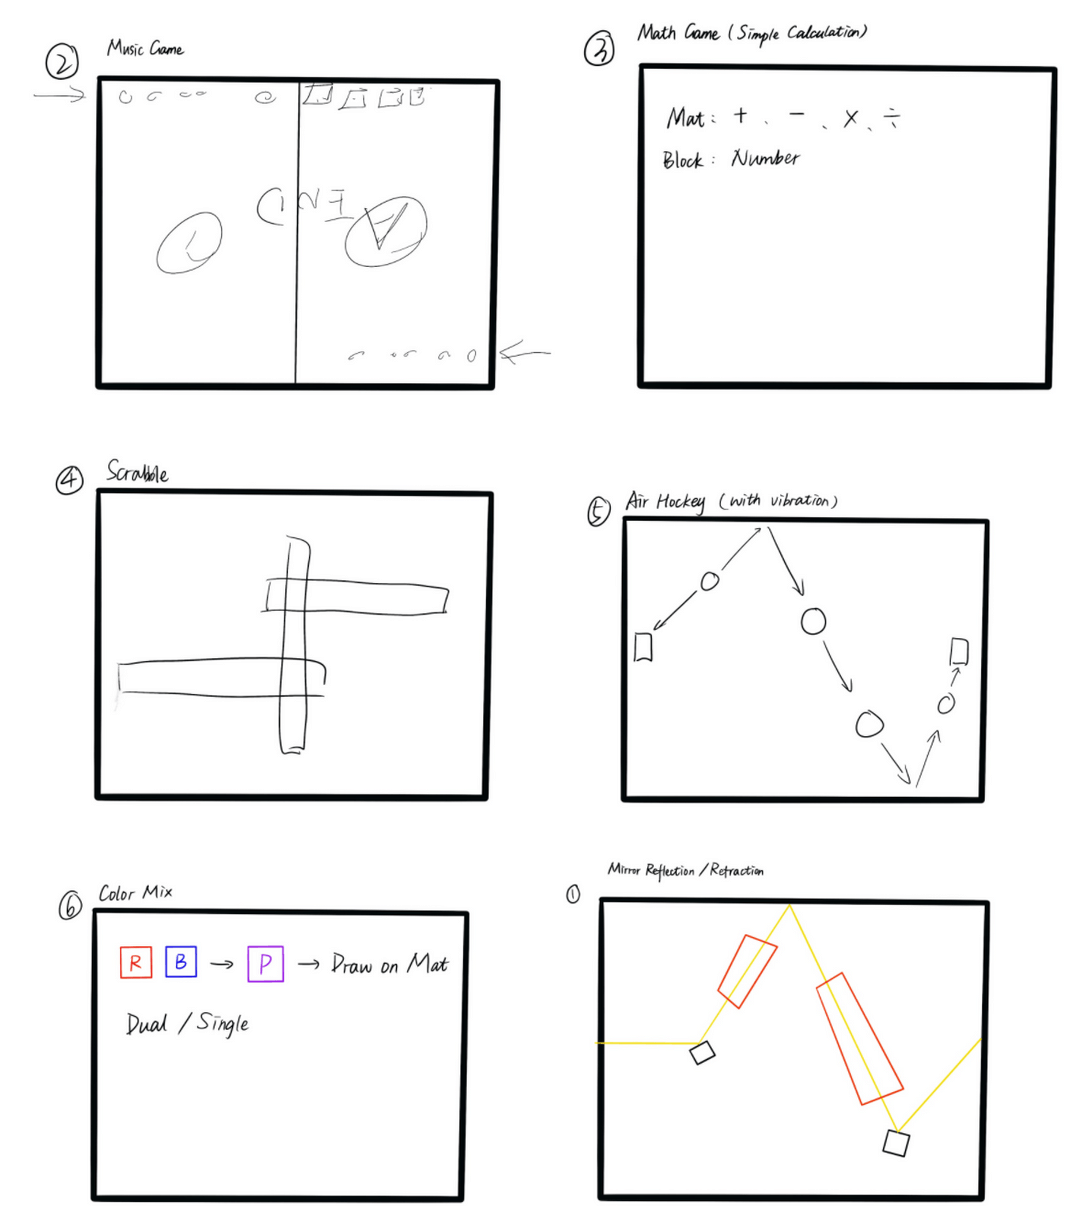 ② Music Game
③ Math Game (Simple Calculation)
Mat: + 、 - 、 × 、 ÷
Block: Number
④ Scrabble
⑤ Air Hockey (with vibration)
⑥ Color Mix
R B → P → Draw on Mat
Dual / Single
① Mirror Reflection / Refraction